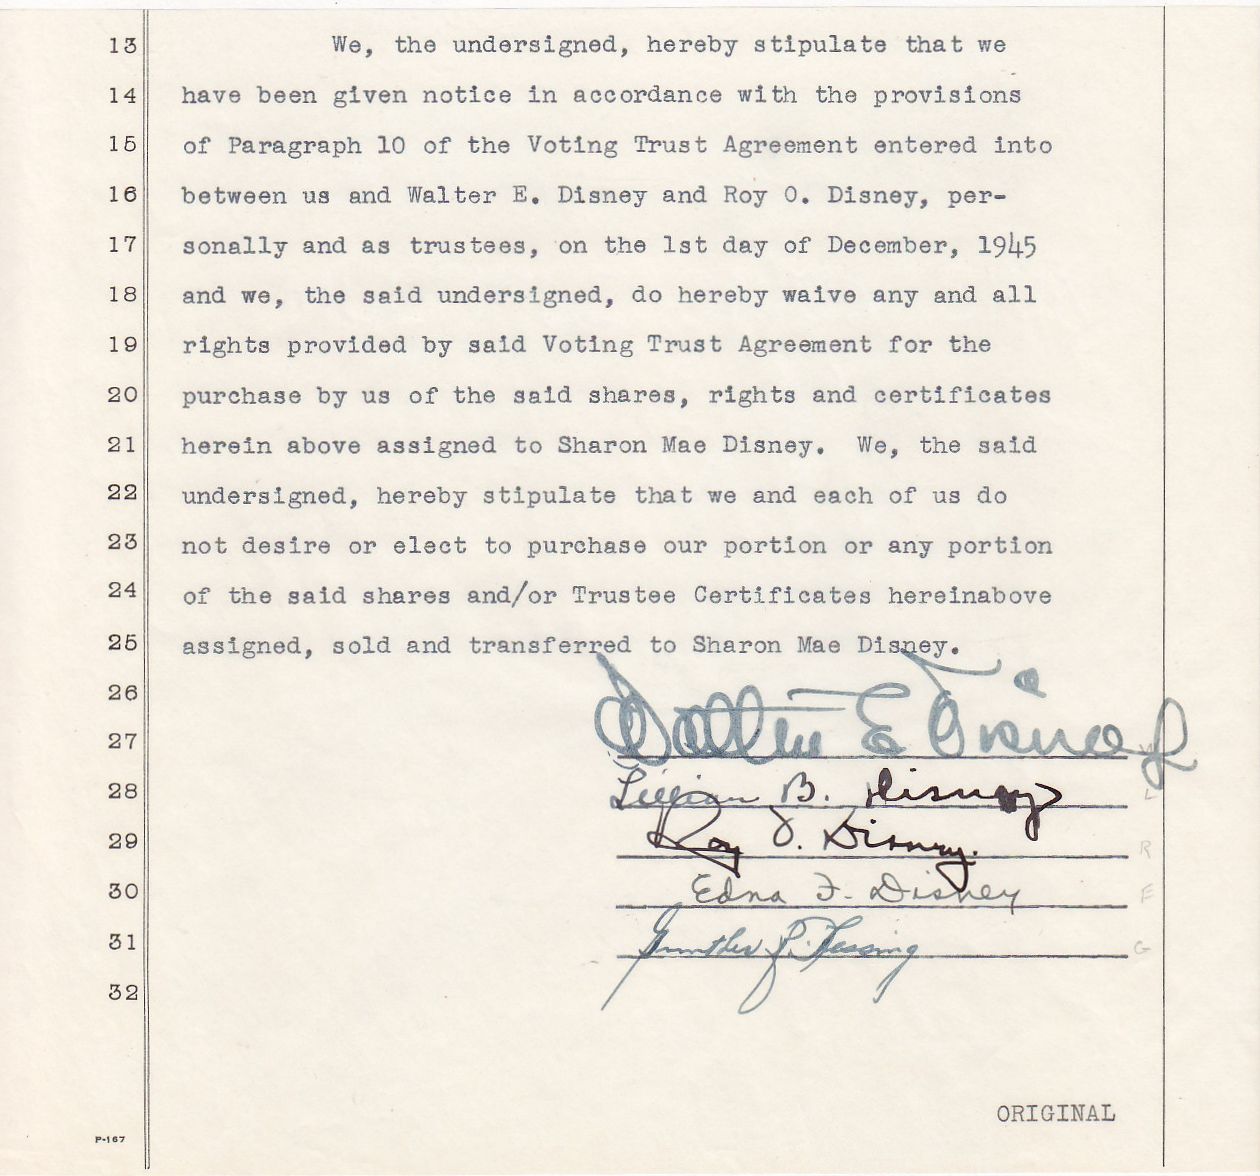 13 We, the undersigned, hereby stipulate that we
14 have been given notice in accordance with the provisions
15 of Paragraph 10 of the Voting Trust Agreement entered into
16 between us and Walter E. Disney and Roy O. Disney, per-
17 sonally and as trustees, on the 1st day of December, 1945
18 and we, the said undersigned, do hereby waive any and all
19 rights provided by said Voting Trust Agreement for the
20 purchase by us of the said shares, rights and certificates
21 herein above assigned to Sharon Mae Disney. We, the said
22 undersigned, hereby stipulate that we and each of us do
23 not desire or elect to purchase our portion or any portion
24 of the said shares and/or Trustee Certificates hereinabove
25 assigned, sold and transferred to Sharon Mae Disney.
26
27 Walter E Disney W
28 Lillian B. Disney L
29 Roy O. Disney. R
30 Edna F. Disney E
31 Gunther R. Lessing G
32
ORIGINAL
P-167